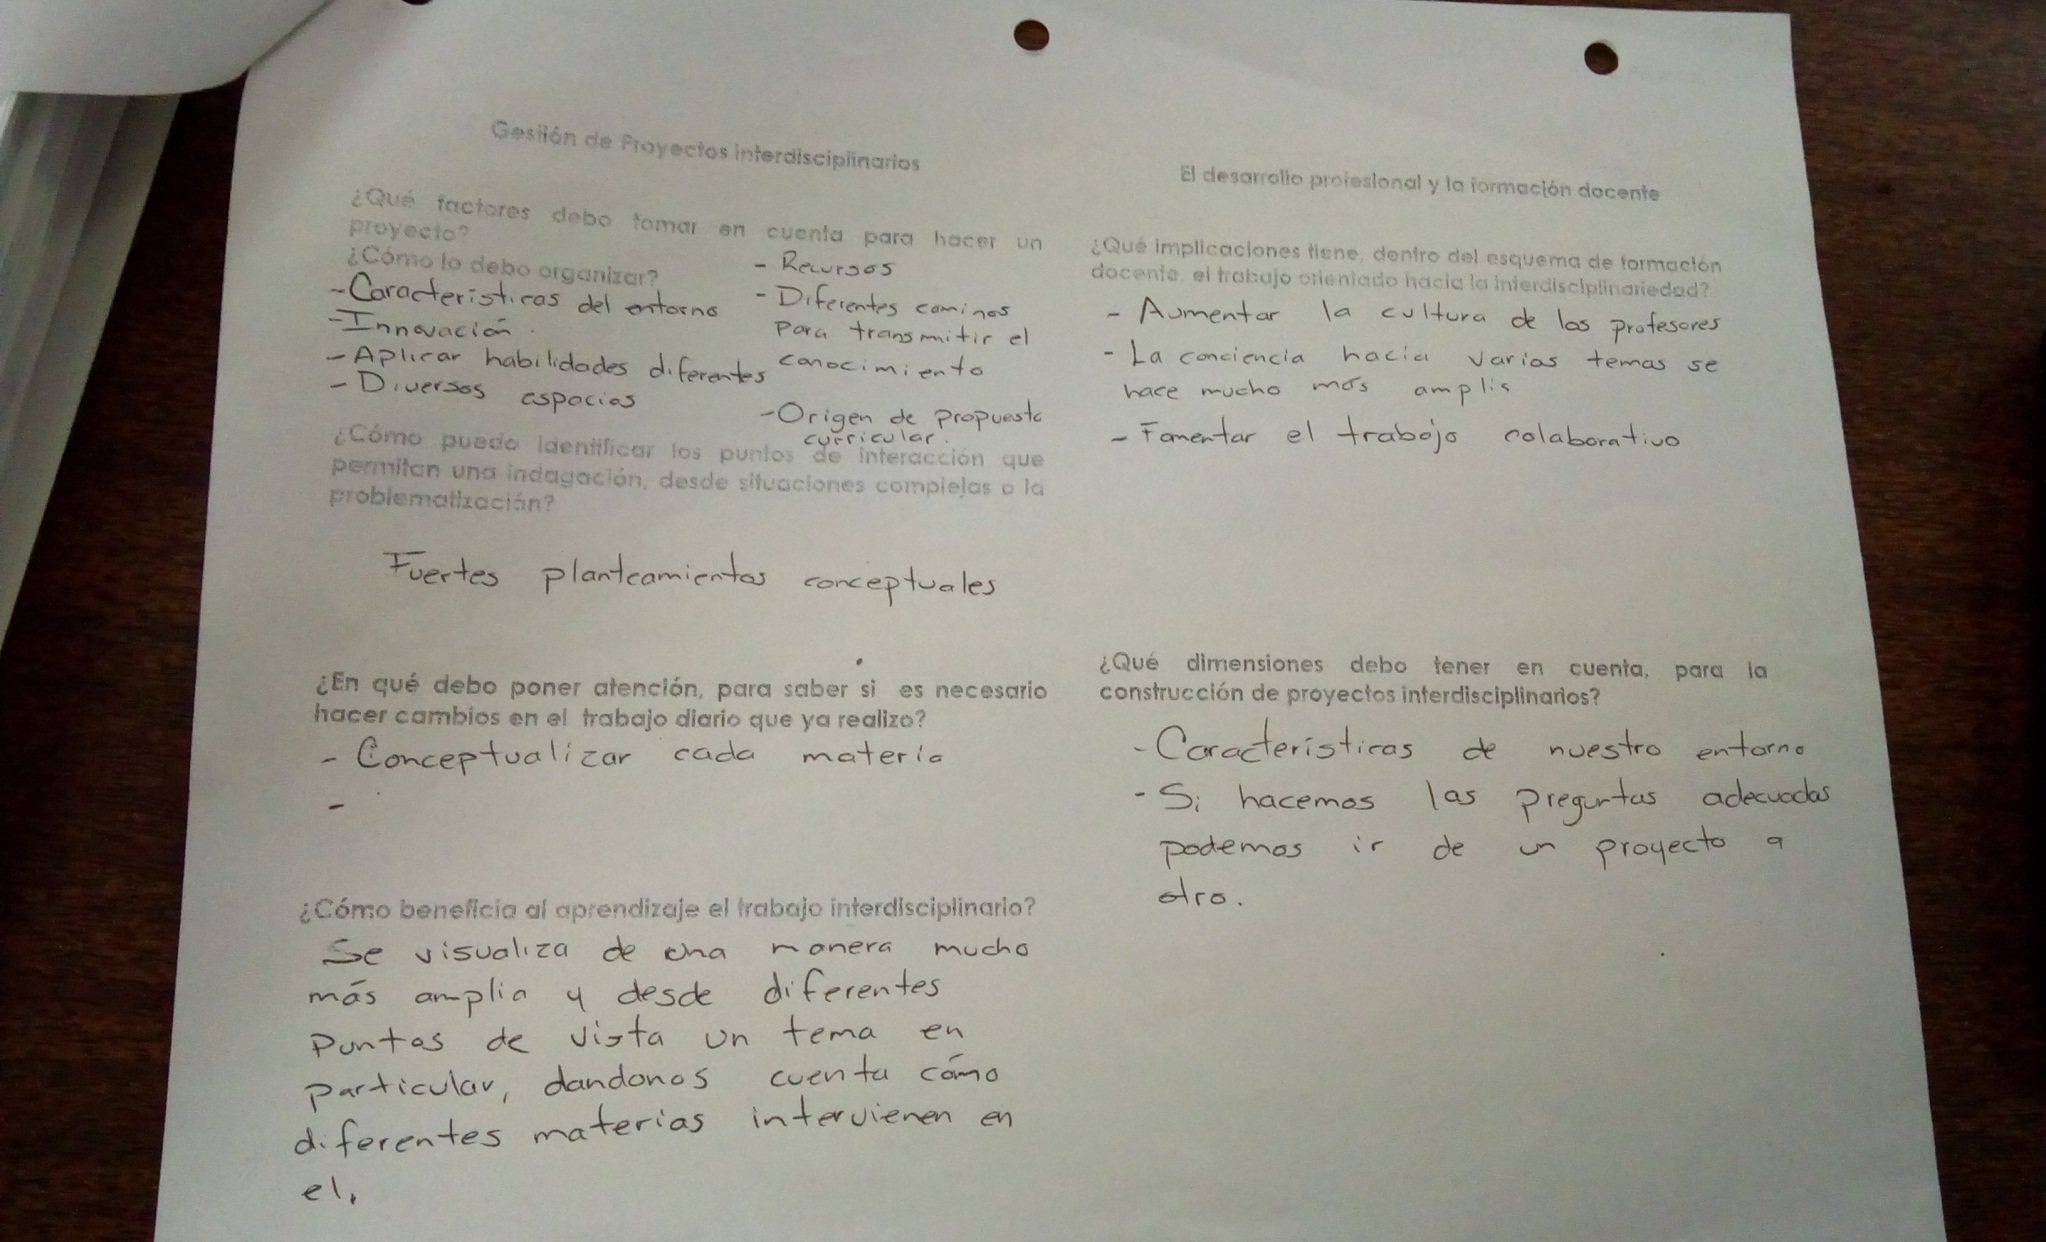 Gestión de Proyectos interdisciplinarios
¿Qué factores debo tomar en cuenta para hacer un
proyecto?
¿Cómo lo debo organizar?
- Caracteristicas del entorno
- Innovación.
- Aplicar habilidades diferentes
- Diversos espacios
- Recursos
- Diferentes caminos
para transmitir el
conocimiento
- Origen de propuesta
curricular.
¿Cómo puedo identificar los puntos de interacción que
permitan una indagación, desde situaciones complejas o la
problematización?
Fuertes planteamientos conceptuales
¿En qué debo poner atención, para saber si es necesario
hacer cambios en el trabajo diario que ya realizo?
- Conceptualizar cada materia
-
¿Cómo beneficia al aprendizaje el trabajo interdisciplinario?
Se visualiza de una manera mucho
más amplia y desde diferentes
puntos de vista un tema en
particular, dandonos cuenta cómo
diferentes materias intervienen en
el.
El desarrollo profesional y la formación docente
¿Qué implicaciones tiene, dentro del esquema de formación
docente, el trabajo orientado hacia la interdisciplinariedad?
- Aumentar la cultura de los profesores
- La conciencia hacia varios temas se
hace mucho más amplia
- Fomentar el trabajo colaborativo
¿Qué dimensiones debo tener en cuenta, para la
construcción de proyectos interdisciplinarios?
- Características de nuestro entorno
- Si hacemos las preguntas adecuadas
podemos ir de un proyecto a
otro.